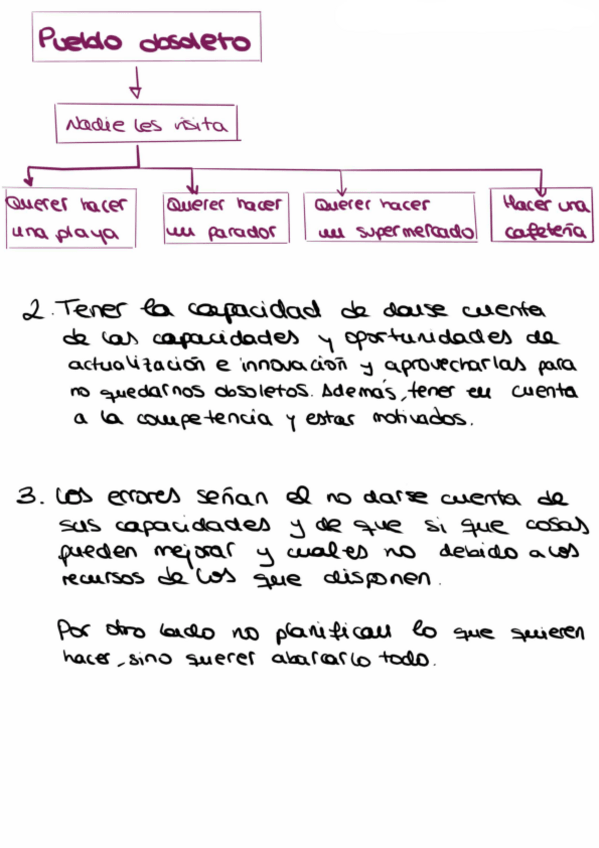 Pueblo obsoleto
Nadie les visita
Querer hacer
una playa
Querer hacer
un parador
Querer hacer
un supermercado
Hacer una
cafetería
2. Tener la capacidad de darse cuenta
de las capacidades y oportunidades de
actualización e innovación y aprovecharlas para
no quedarnos obsoletos. Además, tener en cuenta
a la competencia y estar motivados.
3. Los errores señan el no darse cuenta de
sus capacidades y de que si que cosas
pueden mejorar y cuales no debido a los
recursos de los que disponen.
Por otro lado no planifican lo que quieren
hacer, sino querer abarcarlo todo.